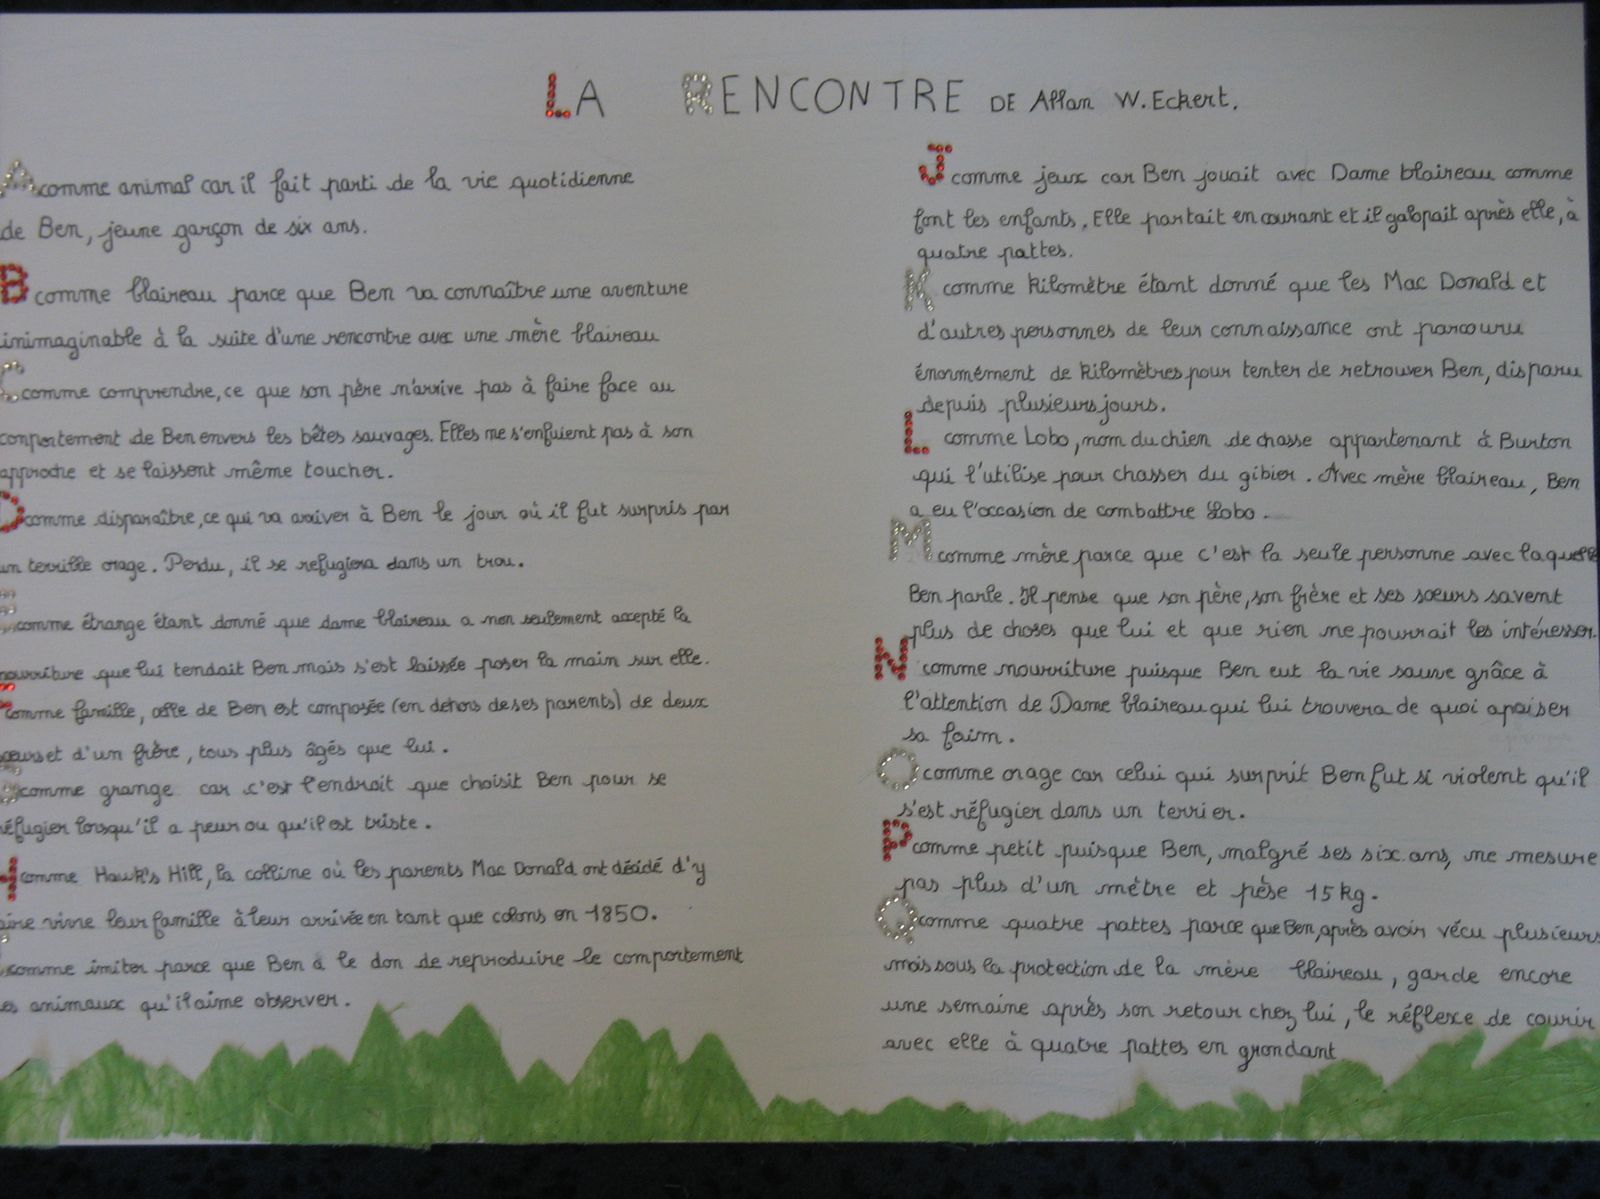 LA RENCONTRE DE Allan W. Eckert.
A comme animal car il fait parti de la vie quotidienne
de Ben, jeune garçon de six ans.
B comme blaireau parce que Ben va connaître une aventure
inimaginable à la suite d'une rencontre avec une mère blaireau
C comme comprendre, ce que son père n'arrive pas à faire face au
comportement de Ben envers les bêtes sauvages. Elles ne s'enfuient pas à son
approche et se laissent même toucher.
D comme disparaître, ce qui va arriver à Ben le jour où il fut surpris par
un terrible orage. Perdu, il se refugiera dans un trou.
E comme étrange étant donné que dame blaireau a non seulement accepté la
nourriture que lui tendait Ben mais s'est laissée poser la main sur elle.
F comme famille, celle de Ben est composée (en dehors de ses parents) de deux
soeurs et d'un frère, tous plus âgés que lui.
G comme grange car c'est l'endroit que choisit Ben pour se
réfugier lorsqu'il a peur ou qu'il est triste.
H comme Hawk's Hill, la colline où les parents Mac Donald ont décidé d'y
faire vivre leur famille à leur arrivée en tant que colons en 1850.
I comme imiter parce que Ben a le don de reproduire le comportement
des animaux qu'il aime observer.
J comme jeux car Ben jouait avec Dame blaireau comme
font les enfants. Elle partait en courant et il galopait après elle, à
quatre pattes.
K comme kilomètre étant donné que les Mac Donald et
d'autres personnes de leur connaissance ont parcouru
énormément de kilomètres pour tenter de retrouver Ben, disparu
depuis plusieurs jours.
L comme Lobo, nom du chien de chasse appartenant à Burton
qui l'utilise pour chasser du gibier. Avec mère blaireau, Ben
a eu l'occasion de combattre Lobo.
M comme mère parce que c'est la seule personne avec laquelle
Ben parle. Il pense que son père, son frère et ses soeurs savent
plus de choses que lui et que rien ne pourrait les intéresser.
N comme nourriture puisque Ben eut la vie sauve grâce à
l'attention de Dame blaireau qui lui trouvera de quoi apaiser
sa faim.
O comme orage car celui qui surprit Ben fut si violent qu'il
s'est réfugier dans un terrier.
P comme petit puisque Ben, malgré ses six ans, ne mesure
pas plus d'un mètre et pèse 15 kg.
Q comme quatre pattes parce que Ben, après avoir vécu plusieurs
mois sous la protection de la mère blaireau, garde encore
une semaine après son retour chez lui, le réflexe de courir
avec elle à quatre pattes en grondant